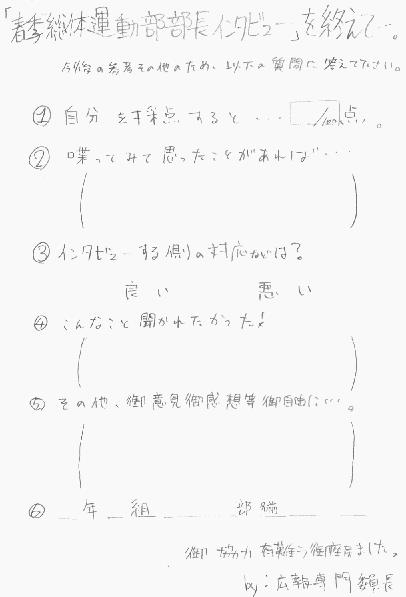 「春季総体運動部部長インタビュー」を終えて…。
今後の参考その他のため、以下の質問に答えて下さい。
① 自分を採点すると・・・ /100点。
② 喋ってみて思ったことがあれば・・・
③ インタビューする側の対応などは?
良い 悪い
④ こんなこと聞かれたかった!
⑤ その他、御意見御感想等御自由に…。
⑥ 年 組 部
御協力有難う御座居ました。
by:広報専門額長